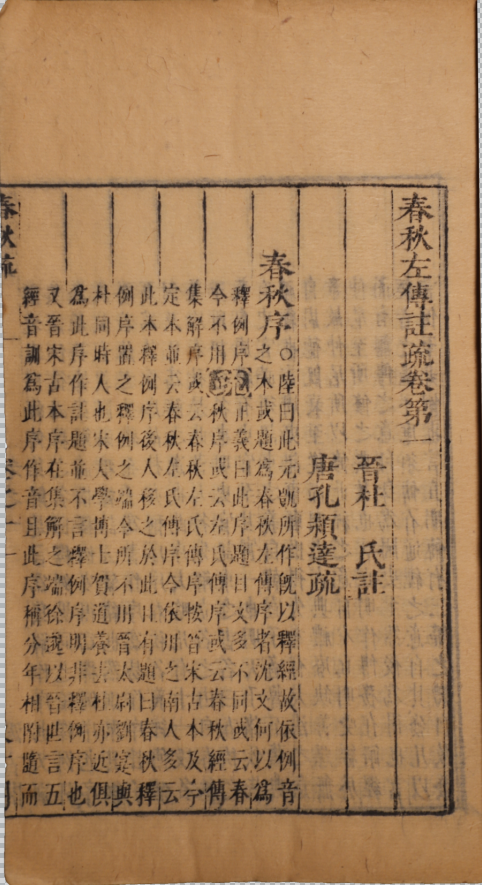 春秋左傳註疏卷第一
晉杜 氏註
唐孔穎達疏
春秋序○陸曰此元凱所作既以釋經故依例音
之本或題爲春秋左傳序者沈文何以爲
釋例序
今不用疏正義曰此序題目文多不同或云春
秋序或云左氏傳序或云春秋經傳
集解序或云春秋左氏傳序按晉宋古本及今
定本並云春秋左氏傳序今依用之南人多云
此本釋例序後人移之於此且有題曰春秋釋
例序置之釋例之端今所不用晉太尉劉寔與
杜同時人也宋大學博士賀道養去杜亦近俱
爲此序作註題並不言釋例序明非釋例序也
又晉宋古本序在集解之端徐邈以晉世言五
經音訓爲此序作音且此序稱分年相附隨而
春秋疏
卷之一